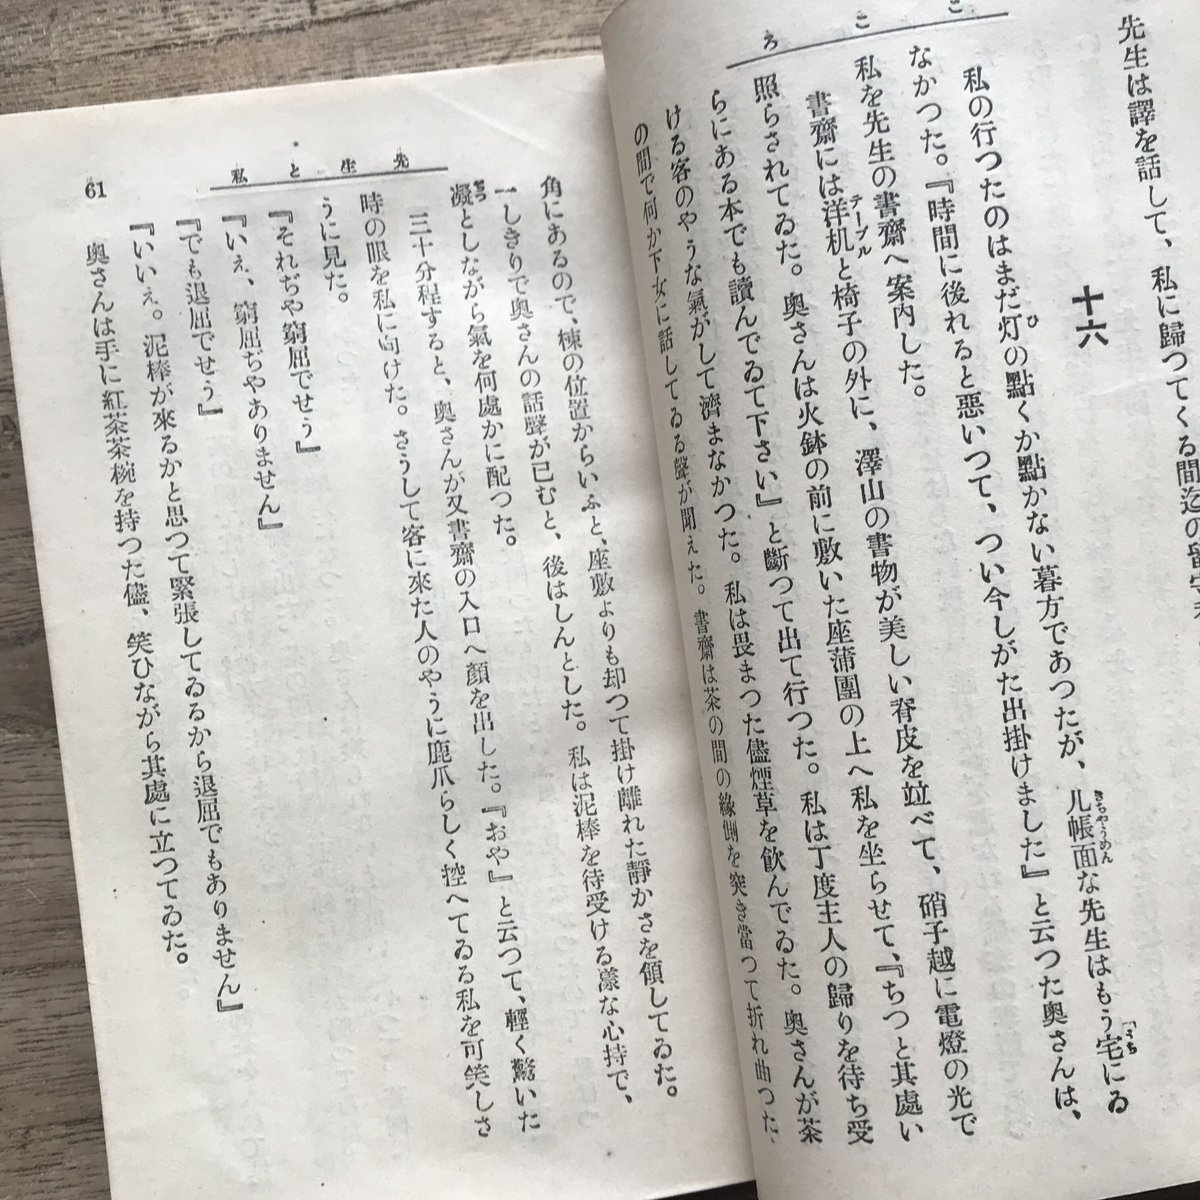 こころ
先生は譯を話して、私に歸つてくる間迄の留守
十六
私の行つたのはまだ灯の點くか點かない暮方であつたが、几帳面な先生はもう宅にゐ
なかつた。『時間に後れると惡いつて、つい今しがた出掛けました』と云つた奥さんは、
私を先生の書齋へ案内した。
書齋には洋机と椅子の外に、澤山の書物が美しい脊皮を竝べて、硝子越に電燈の光で
照らされてゐた。奥さんは火鉢の前に敷いた座蒲團の上へ私を坐らせて、『ちつと其處い
らにある本でも讀んでゐて下さい』と斷つて出て行つた。私は丁度主人の歸りを待ち受
ける客のやうな氣がして濟まなかつた。私は畏まつた儘煙草を飲んでゐた。奥さんが茶
の間で何か下女に話してゐる聲が聞えた。書齋は茶の間の緣側を突き當つて折れ曲つた
先生と私
角にあるので、棟の位置からいふと、座敷よりも却つて掛け離れた靜かさを領してゐた。
一しきりで奥さんの話聲が已むと、後はしんとした。私は泥棒を待受ける樣な心持で、
凝としながら氣を何處かに配つた。
三十分程すると、奥さんが又書齋の入口へ顏を出した。『おや』と云つて、輕く驚いた
時の眼を私に向けた。さうして客に來た人のやうに鹿爪らしく控へてゐる私を可笑しさ
うに見た。
『それぢや窮屈でせう』
『いえ、窮屈ぢやありません』
『でも退屈でせう』
『いいえ。泥棒が來るかと思つて緊張してゐるから退屈でもありません』
奥さんは手に紅茶茶椀を持つた儘、笑ひながら其處に立つてゐた。
61